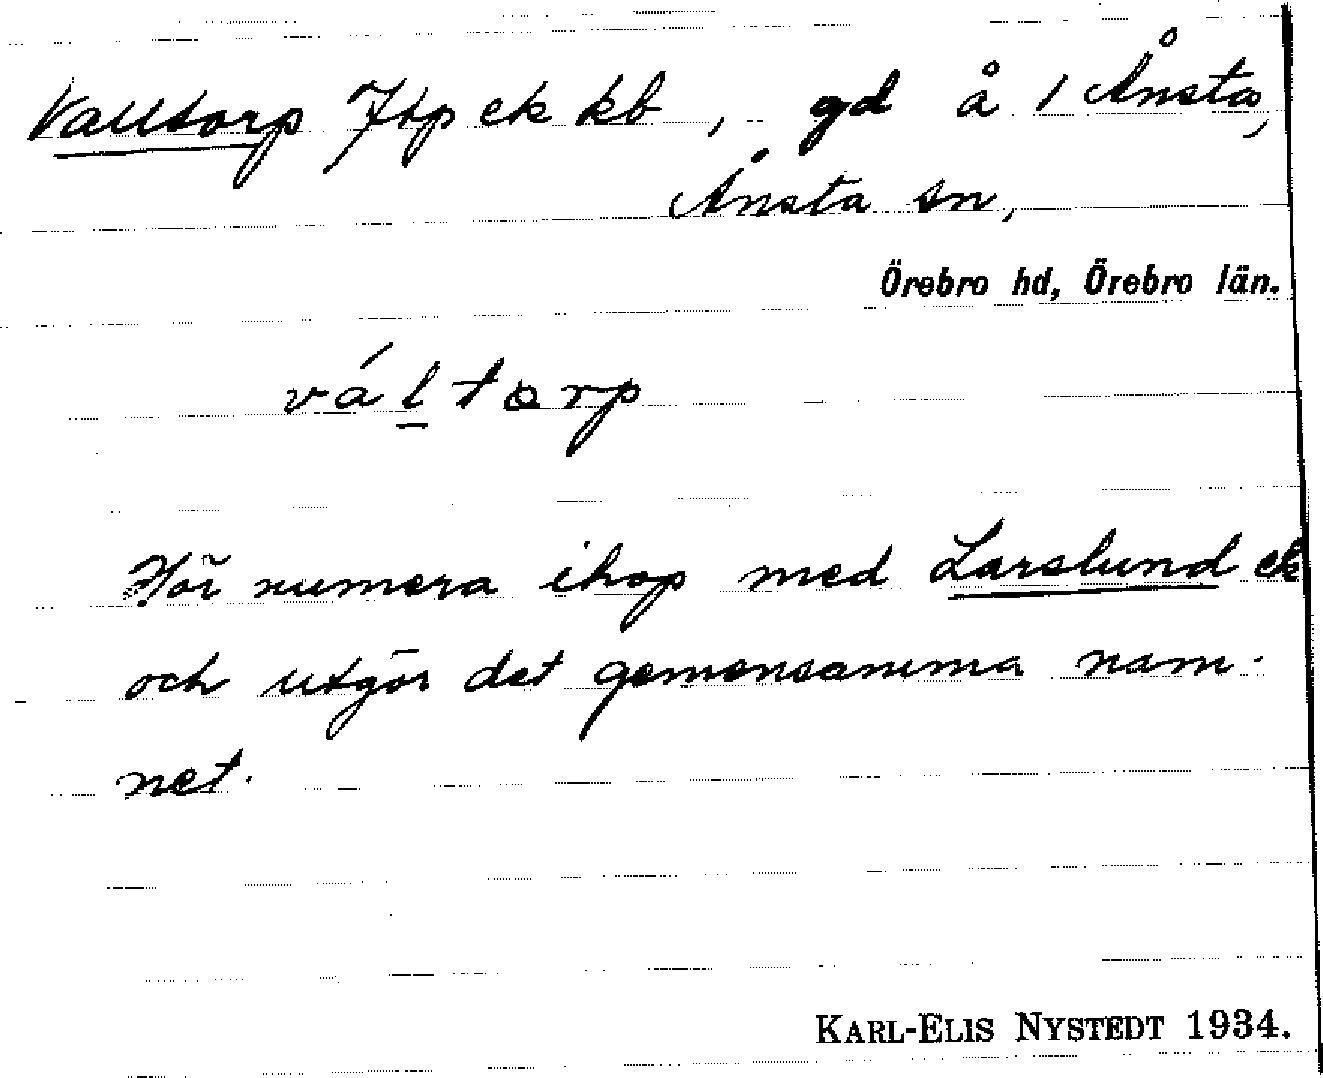 Valltorp Jtp ek kb, gd å 1 Ånsta,
Ånsta sn,
Örebro hd, Örebro län.
váltorp
Hör numera ihop med Larslund ek
och utgör det gemensamma nam-
net.
KARL-ELIS NYSTEDT 1934.